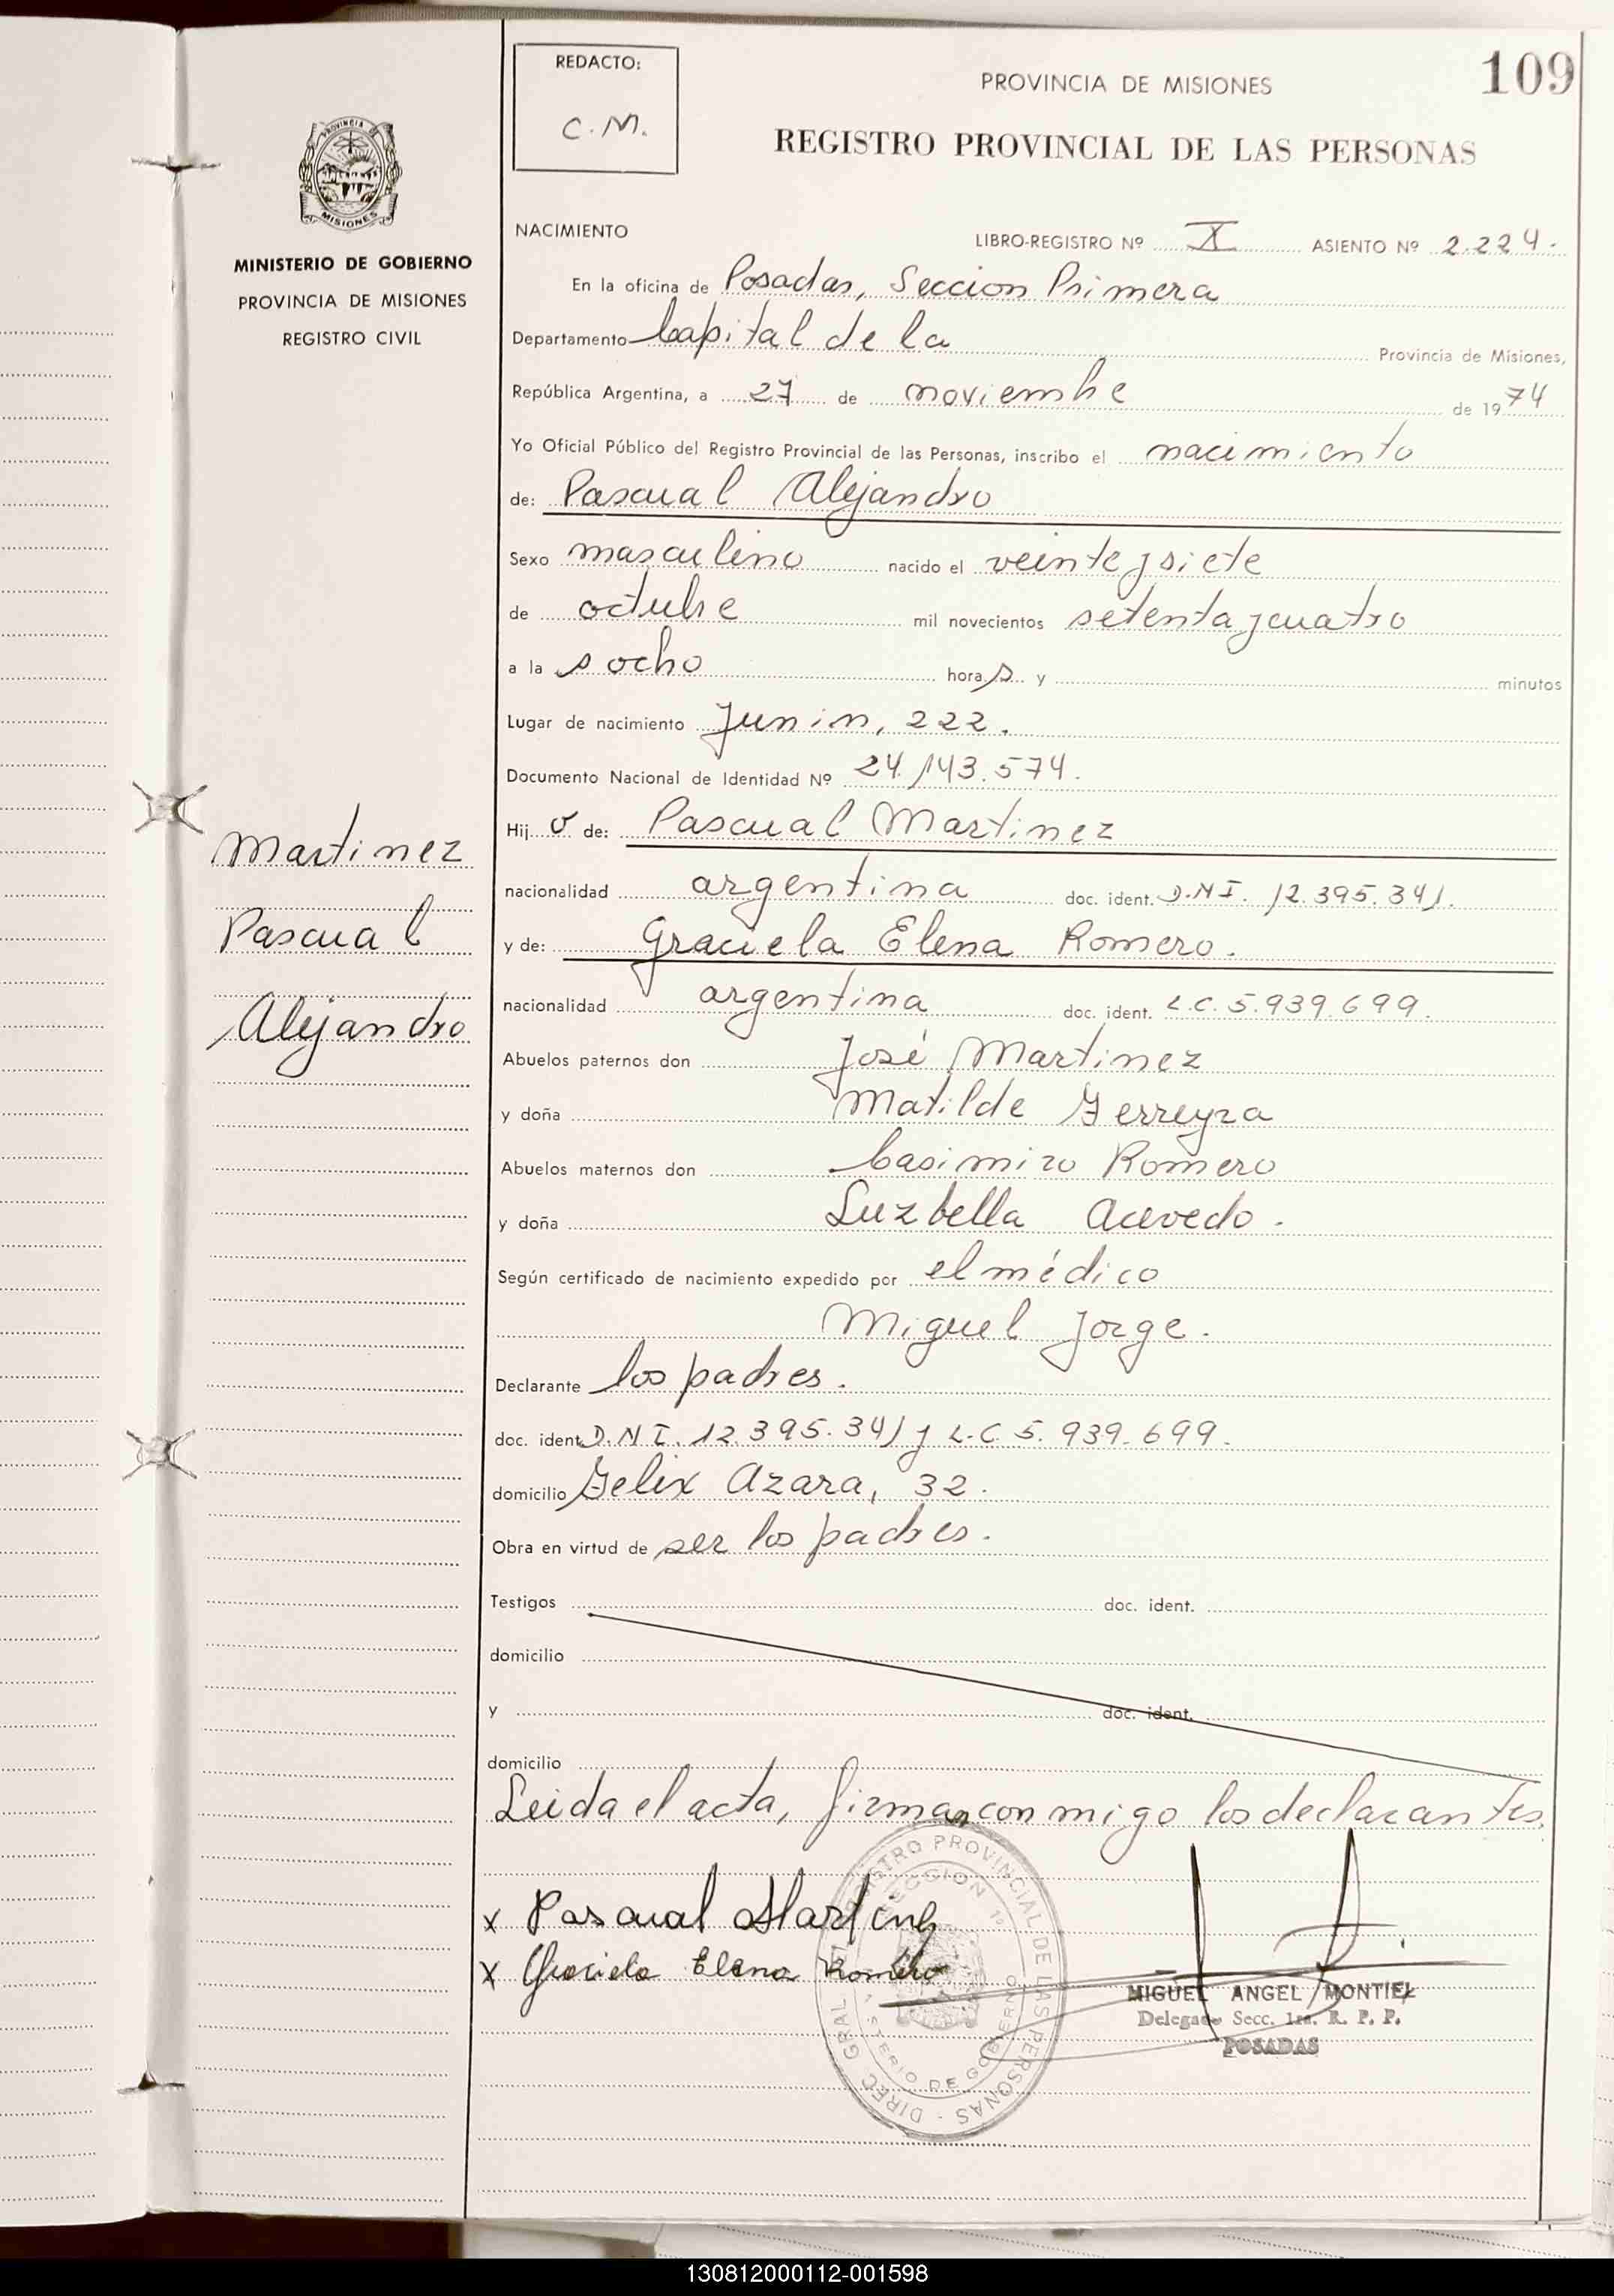 109
REDACTO:
C.M.
PROVINCIA DE MISIONES
REGISTRO PROVINCIAL DE LAS PERSONAS
PROVINCIA DE
MISIONES
MINISTERIO DE GOBIERNO
PROVINCIA DE MISIONES
REGISTRO CIVIL
Martinez
Pascual
Alejandro
NACIMIENTO
LIBRO-REGISTRO Nº X ASIENTO Nº 2.224.
En la oficina de Posadas, Seccion Primera
Departamento Capital de la Provincia de Misiones,
República Argentina, a 27 de noviembre de 1974
Yo Oficial Público del Registro Provincial de las Personas, inscribo el nacimiento
de: Pascual Alejandro
Sexo masculino nacido el veinte y siete
de octubre mil novecientos setenta y cuatro
a la s ocho hora s y minutos
Lugar de nacimiento Junin, 222.
Documento Nacional de Identidad Nº 24.143.574.
Hij o de: Pascual Martinez
nacionalidad argentina doc. ident. D.N.I. 12.395.341.
y de: Graciela Elena Romero.
nacionalidad argentina doc. ident. L.C. 5.939.699.
Abuelos paternos don José Martinez
y doña Matilde Ferreyra
Abuelos maternos don Casimiro Romero
y doña Luzbella Acevedo.
Según certificado de nacimiento expedido por el médico
Miguel Jorge.
Declarante los padres.
doc. ident. D.N.I. 12.395.341 y L.C. 5.939.699.
domicilio Felix Azara, 32.
Obra en virtud de ser los padres.
Testigos doc. ident.
domicilio
y doc. ident.
domicilio
Leida el acta, firman conmigo los declarantes.
x Pascual Martinez
x Graciela Elena Romero
DIREC. GRAL. DEL REGISTRO PROVINCIAL DE LAS PERSONAS
SECCION 1º
MINISTERIO DE GOBIERNO
MIGUEL ANGEL MONTIEL
Delegado Secc. 1ra. R. P. P.
POSADAS
130812000112-001598